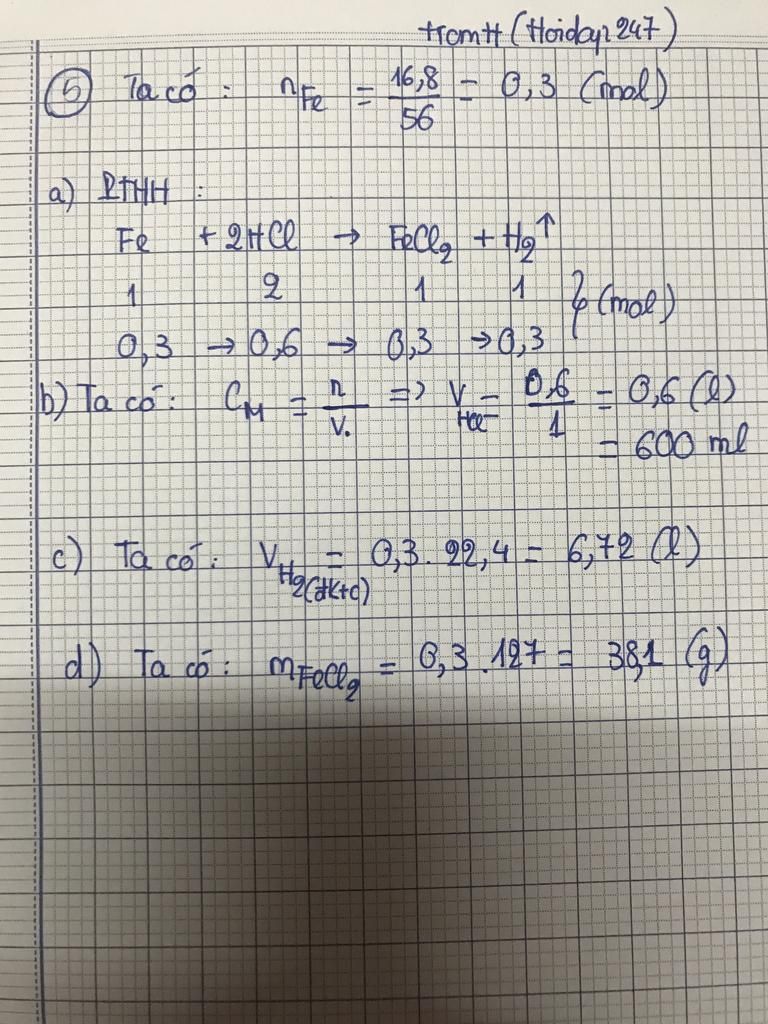 tromtt (Hoidap247)
5 Ta có : nFe = 16,8/56 = 0,3 (mol)
a) PTHH :
Fe + 2HCl → FeCl2 + H2↑
1 2 1 1
0,3 → 0,6 → 0,3 → 0,3 } (mol)
b) Ta có : CM = n/V. => VHCl = 0,6/1 = 0,6 (l)
= 600 ml
c) Ta có : VH2(đktc) = 0,3. 22,4 = 6,72 (l)
d) Ta có : mFeCl2 = 0,3 .127 = 38,1 (g)